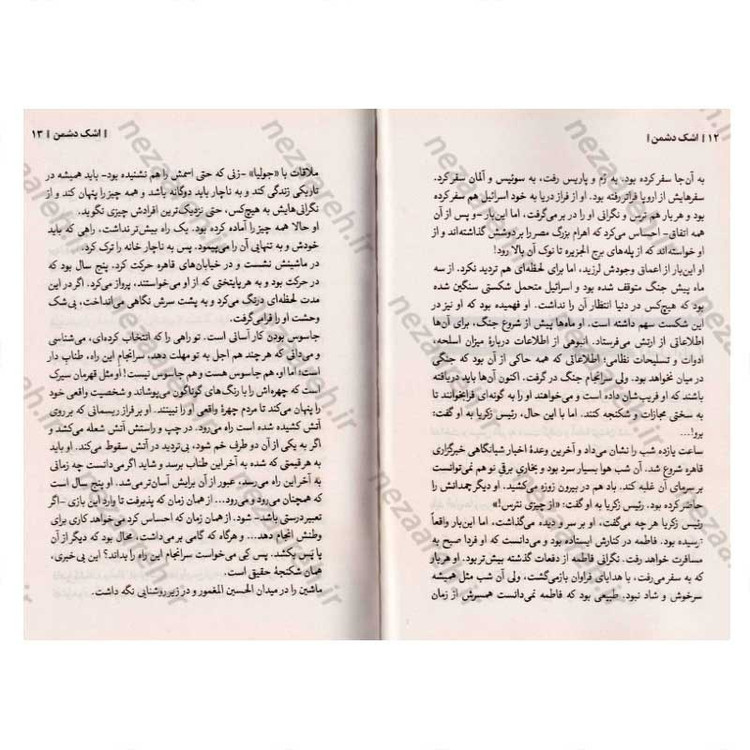 ۱۲ || اشک دشمن ||
به آن‌جا سفرکرده بود، به رُم و پاریس رفت، به سوئیس و آلمان سفرکرد.
سفرهایش از اروپا فراتررفته بود. او از فراز دریا به خود اسرائیل هم سفرکرده
بود و هربار هم ترس و نگرانی او را در بر می‌گرفت، اما این‌بار -و پس از آن
همه اتفاق- احساس می‌کرد که اهرام بزرگ مصر را بردوشش گذاشته‌اند و از
او خواسته‌اند که از پله‌های برج الجزیره تا نوک آن بالا رود!
او این‌بار از اعماق وجودش لرزید، اما برای لحظه‌ای هم تردید نکرد. از سه
ماه پیش جنگ متوقف شده بود و اسرائیل متحمل شکستی سنگین شده
بود که هیچ‌کس در دنیا انتظار آن را نداشت. او فهمیده بود که او نیز در
این شکست سهم داشته است. او ماه‌ها پیش از شروع جنگ، برای آن‌ها
اطلاعاتی از ارتش می‌فرستاد. انبوهی از اطلاعات دربارهٔ میزان اسلحه،
ادوات و تسلیحات نظامی؛ اطلاعاتی که همه حاکی از آن بود که جنگی
در میان نخواهد بود. ولی سرانجام جنگ در گرفت. اکنون آن‌ها باید دریافته
باشند که او فریب‌شان داده است و می‌خواهند او را به گونه‌ای فرابخوانند تا
به سختی مجازات و شکنجه کنند. اما با این حال، رئیس زکریا به او گفت:
برو!...
ساعت یازده شب را نشان می‌داد و آخرین وعدهٔ اخبار شبانگاهی خبرگزاری
قاهره شروع شد. آن شب هوا بسیار سرد بود و بخاریِ برقیِ نو هم نمی‌توانست
بر سرمای آن غلبه کند. باد هم در بیرون زوزه می‌کشید. او دیگر چمدانش را
حاضرکرده بود. رئیس زکریا به او گفت: «از چیزی نترس!»
رئیس زکریا هر چه می‌گفت، او بر سر و دیده می‌گذاشت، اما این‌بار واقعاً
ترسیده بود. فاطمه در کنارش ایستاده بود و می‌دانست که او فردا صبح به
مسافرت خواهد رفت. نگرانی فاطمه از دفعات گذشته بیش‌تر بود. او هربار
که به سفر می‌رفت، با هدایای فراوان بازمی‌گشت، ولی آن شب مثل همیشه
سرخوش و شاد نبود، طبیعی بود که فاطمه نمی‌دانست همسرش از زمان
|| اشک دشمن || ۱۳
ملاقات با «جولیا» -زنی که حتی اسمش را هم نشنیده بود- باید همیشه در
تاریکی زندگی کند و به ناچار باید دوگانه باشد و همه چیز را پنهان کند و از
نگرانی‌هایش به هیچ‌کس، حتی نزدیک‌ترین افرادش چیزی نگوید.
او حالا همه چیز را آماده کرده بود. یک راه بیش‌تر نداشت، راهی که باید
خودش و به تنهایی آن را می‌پیمود. پس به ناچار خانه را ترک کرد.
در ماشینش نشست و در خیابان‌های قاهره حرکت کرد. پنج سال بود که
در حرکت بود و به هر پایتختی که از او می‌خواستند، پرواز می‌کرد. اگر در این
مدت لحظه‌ای درنگ می‌کرد و به پشت سرش نگاهی می‌انداخت، بی‌شک
وحشت او را فرا می‌گرفت.
جاسوس بودن کار آسانی است. تو راهی را که انتخاب کرده‌ای، می‌شناسی
و می‌دانی که هر چند هم اجل به تو مهلت دهد، سرانجام این راه، طناب دار
است؛ اما او، هم جاسوس هست و هم جاسوس نیست! او مثل قهرمان سیرک
است که چهره‌اش را با رنگ‌های گوناگون می‌پوشاند و شخصیت واقعی خود
را پنهان می‌کند تا مردم چهرهٔ واقعی او را نبینند. او بر فراز ریسمانی که بر روی
آتش کشیده شده است راه می‌رود. در چپ و راستش آتش شعله می‌کشد و
اگر به یکی از آن دو طرف خم شود، بی‌تردید در آتش سقوط می‌کند. او باید
به هر قیمتی که شده به آخر این طناب برسد و شاید اگر می‌دانست چه زمانی
به آخر این راه می‌رسد، عبور از آن برایش آسان‌تر می‌شد. او پنج سال است
که همچنان می‌رود و می‌رود... از همان زمان که پذیرفت تا وارد این بازی -اگر
تعبیر درستی باشد- شود. از همان زمان که احساس کرد می‌خواهد کاری برای
وطنش انجام دهد... و هرگاه که گامی بر می‌داشت، محال بود که دیگر از آن
پا پس بکشد. پس کی می‌خواست سرانجام این راه را بداند؟ این بی‌خبری،
همان شکنجهٔ حقیقی است.
ماشین را در میدان الحسین المغمور و در زیر روشنایی نگه داشت.
nezaareh.ir